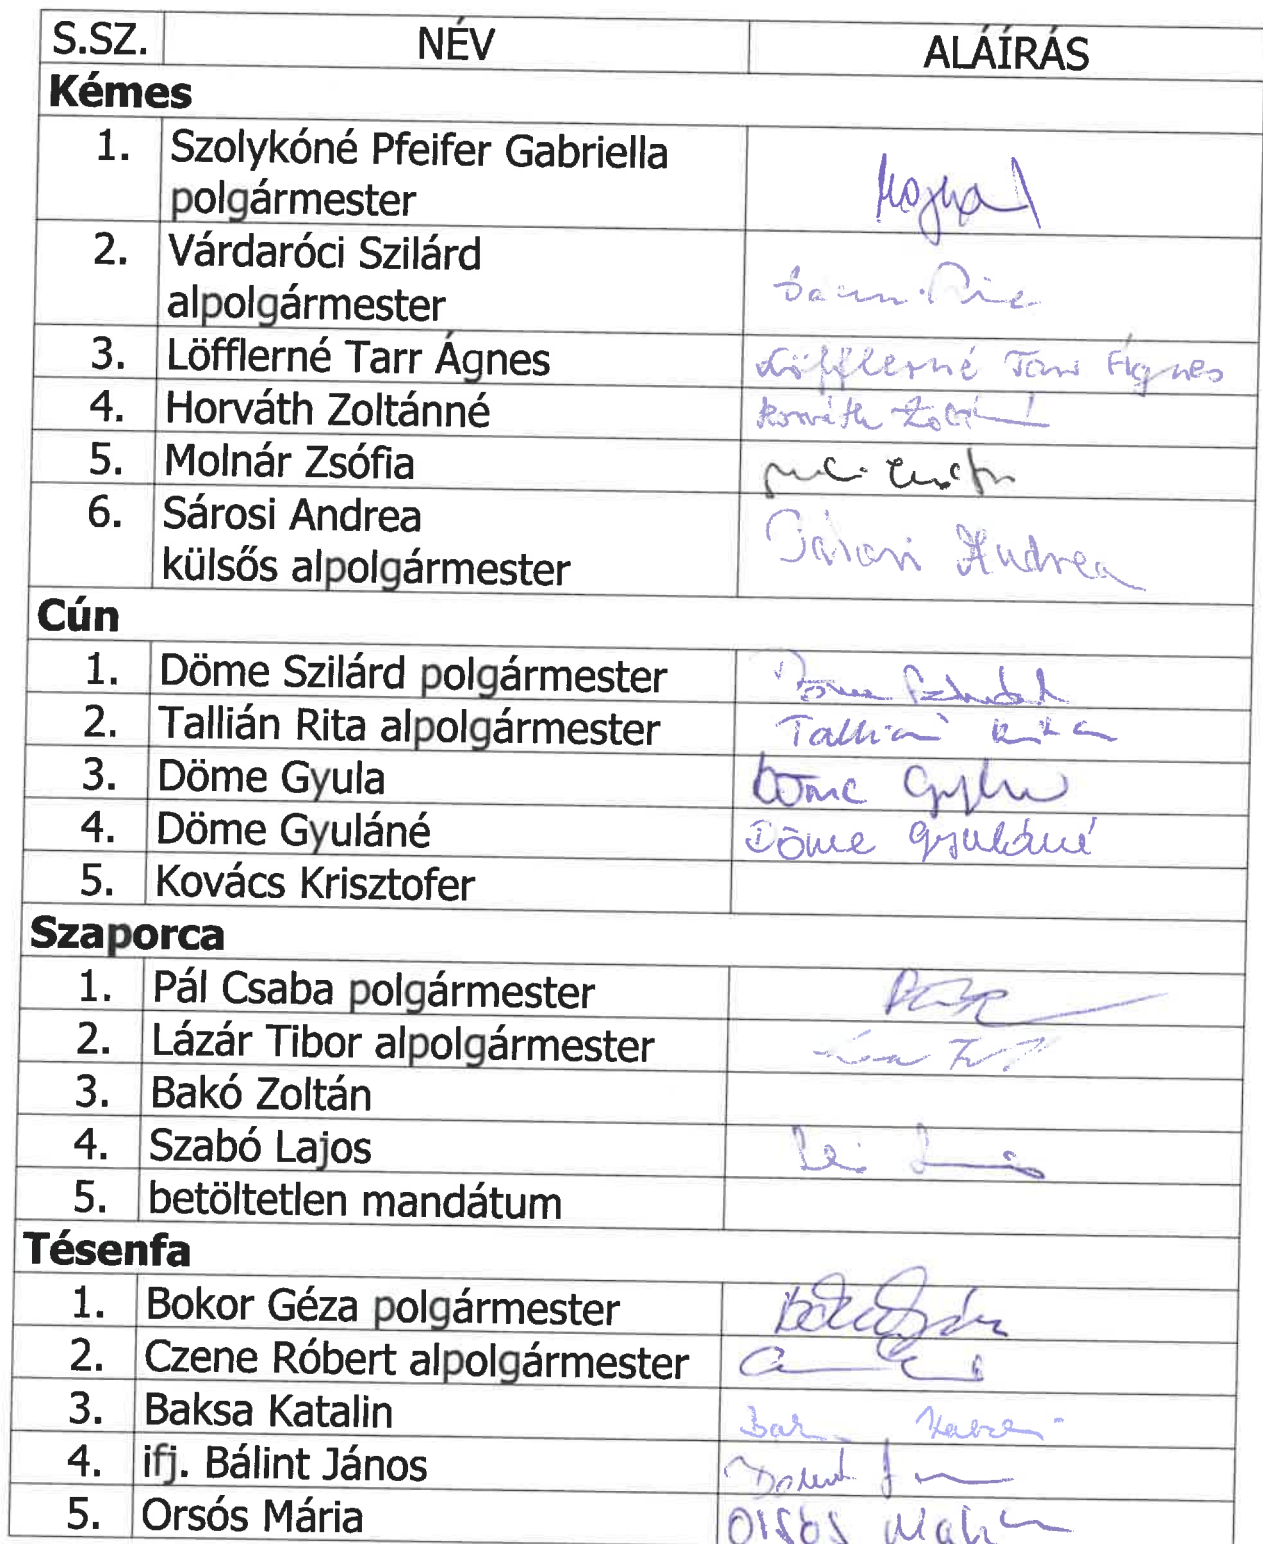 S.SZ. NÉV ALÁÍRÁS
Kémes
1. Szolykóné Pfeifer Gabriella
polgármester
2. Várdaróci Szilárd
alpolgármester
3. Löfflerné Tarr Ágnes Löfflerné Tarr Ágnes
4. Horváth Zoltánné Horváth
5. Molnár Zsófia
6. Sárosi Andrea Sárosi Andrea
külsős alpolgármester
Cún
1. Döme Szilárd polgármester Döme
2. Tallián Rita alpolgármester Tallián Rita
3. Döme Gyula Döme Gyula
4. Döme Gyuláné Döme Gyuláné
5. Kovács Krisztofer
Szaporca
1. Pál Csaba polgármester
2. Lázár Tibor alpolgármester
3. Bakó Zoltán
4. Szabó Lajos
5. betöltetlen mandátum
Tésenfa
1. Bokor Géza polgármester
2. Czene Róbert alpolgármester
3. Baksa Katalin
4. ifj. Bálint János
5. Orsós Mária Orsós Mária